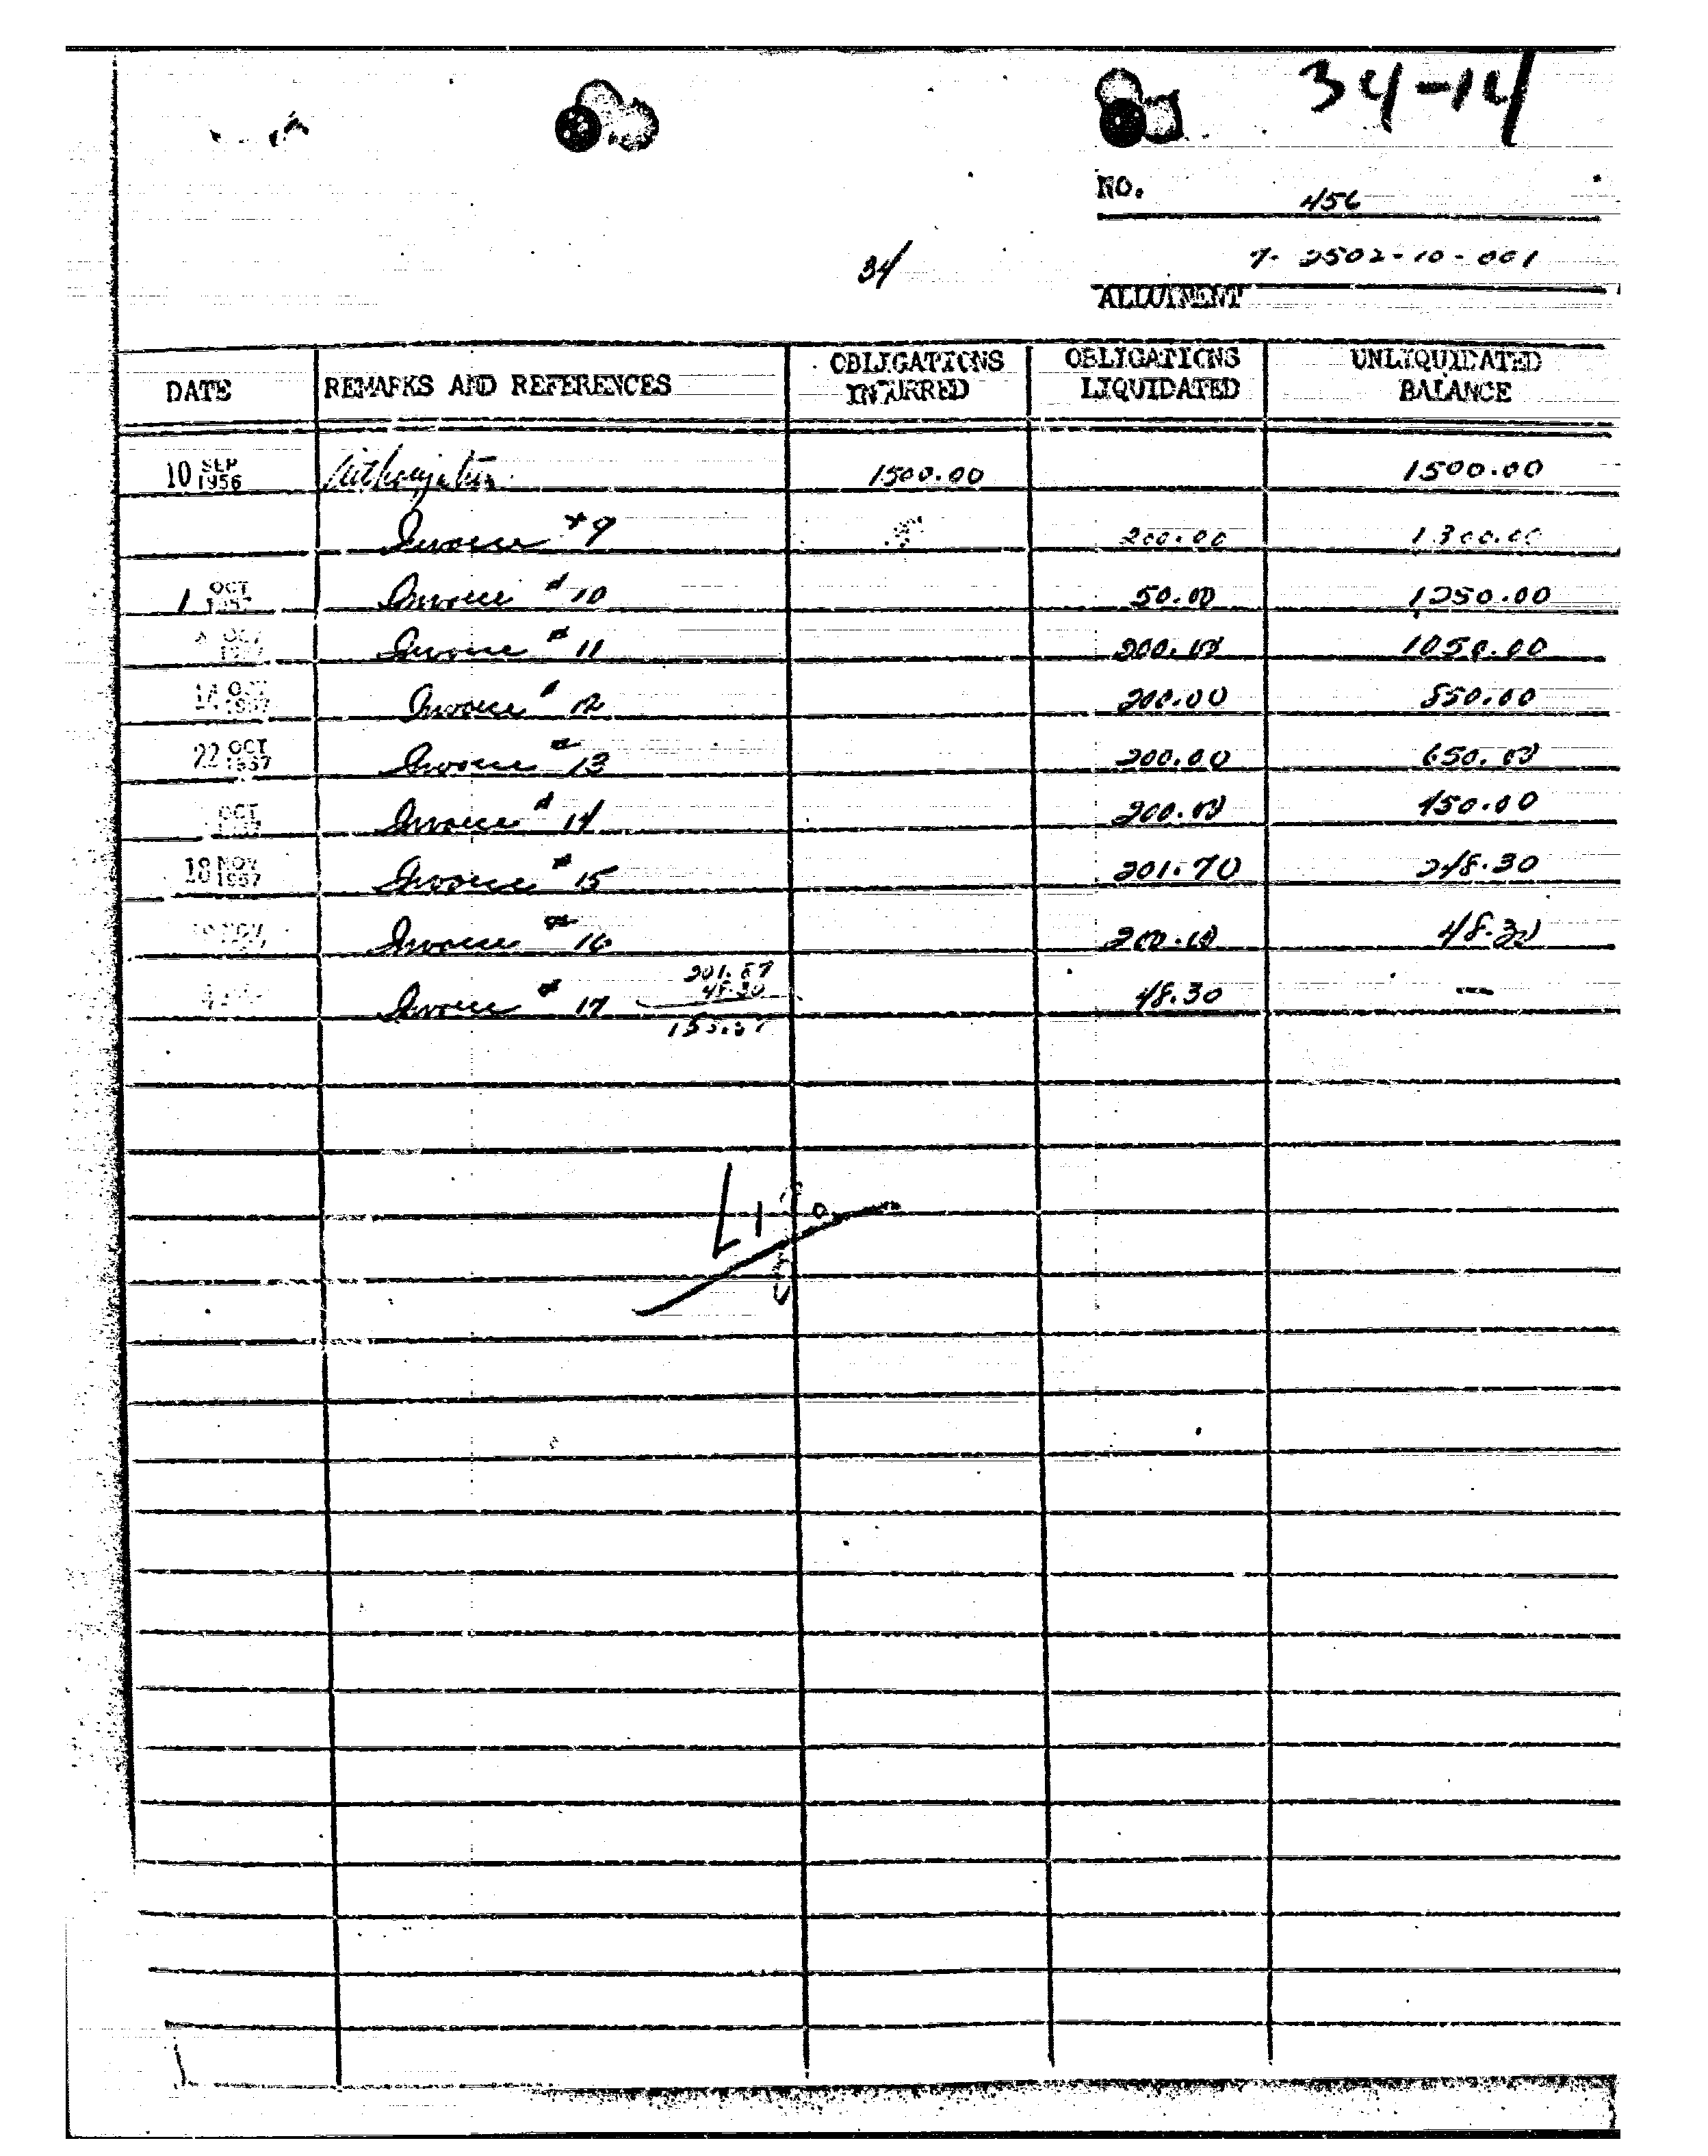 34-14
NO. 456
34
7-2502-10-001
ALLOTMENT
DATE REMARKS AND REFERENCES OBLIGATIONS INCURRED OBLIGATIONS LIQUIDATED UNLIQUIDATED BALANCE
10 SEP 1956 Authorization 1500.00 1500.00
Invoice #9 200.00 1300.00
1 OCT 1957 Invoice #10 50.00 1250.00
OCT Invoice #11 200.00 1050.00
14 OCT 1957 Invoice #12 200.00 850.00
22 OCT 1957 Invoice #13 200.00 650.00
OCT Invoice #14 200.00 450.00
18 NOV 1957 Invoice #15 201.70 248.30
NOV Invoice #16 200.00 48.30
201.87
48.30
Invoice #17 48.30 —
153.57